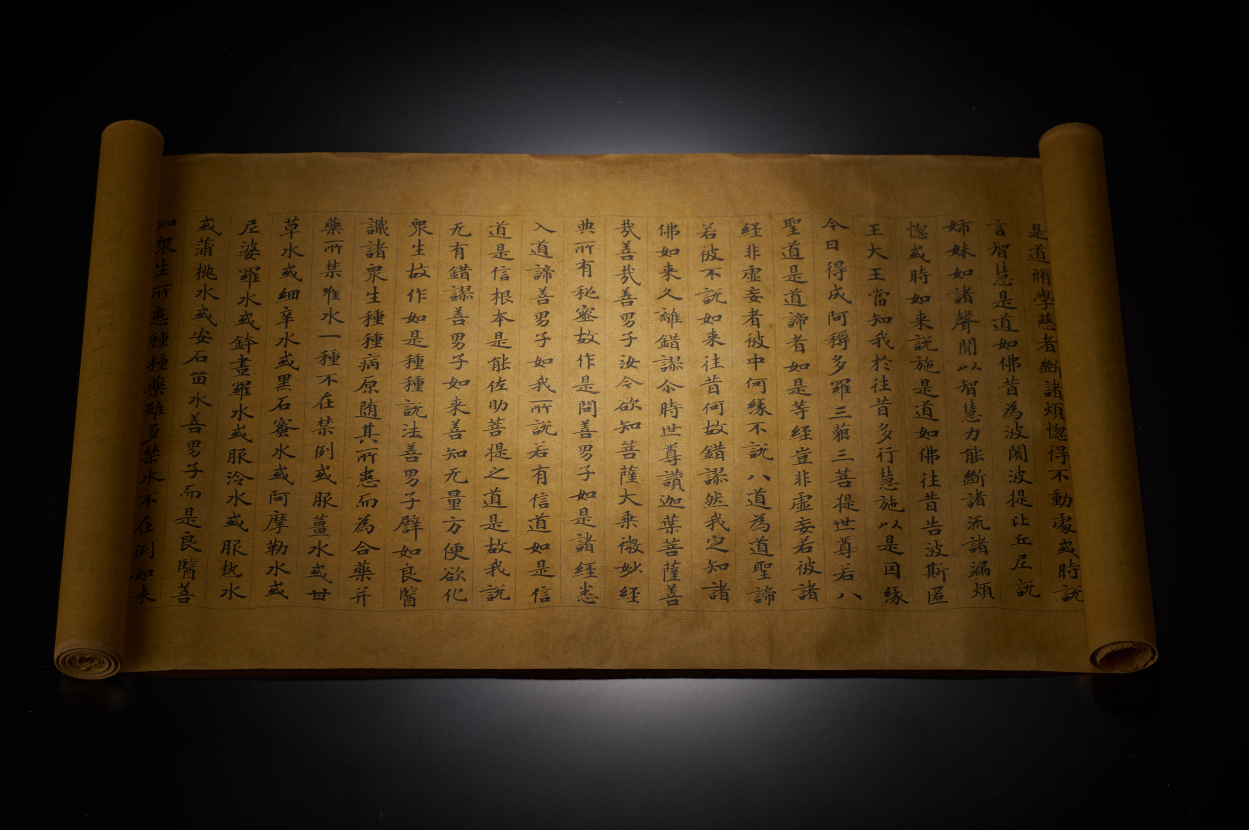 是道修學慈者斷諸煩惱得不動處或時說
言智慧是道如佛昔為波闍波提比丘尼說
姉妹如諸聲聞以智慧力能斷諸流諸漏煩
惱或時如来說施是道如佛往昔告波斯匿
王大王當知我於往昔多行慧施以是因緣
今日得成阿耨多羅三藐三菩提世尊若八
聖道是道諦者如是等經豈非虛妄若彼諸
經非虛妄者彼中何緣不說八道為道聖諦
若彼不說如来往昔何故錯謬然我定知諸
佛如来久離錯謬尒時世尊讚迦葉菩薩善
㢤善㢤善男子汝今欲知菩薩大乘微妙經
典所有秘密故作是問善男子如是諸經悉
入道諦善男子如我所說若有信道如是信
道是信根本是能佐助菩提之道是故我說
无有錯謬善男子如来善知无量方便欲化
衆生故作如是種種說法善男子譬如良醫
識諸衆生種種病原隨其所患而為合藥并
藥所禁唯水一種不在禁例或服薑水或甘
草水或細辛水或黑石蜜水或阿摩勒水或
尼婆羅水或鉢晝羅水或服冷水或服熱水
或蒲桃水或安石笛水善男子而是良醫善
知衆生所患種種藥雖多禁水不在例如来